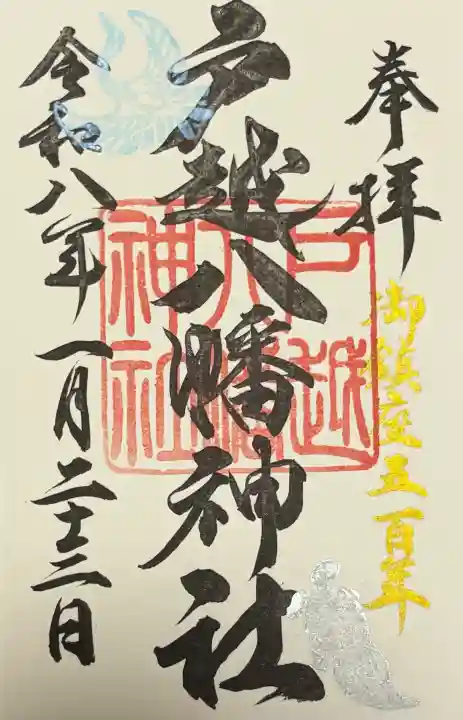 奉拝
御鎮座五百年
戸越八幡神社
戸越八幡神社
令和八年一月二十三日